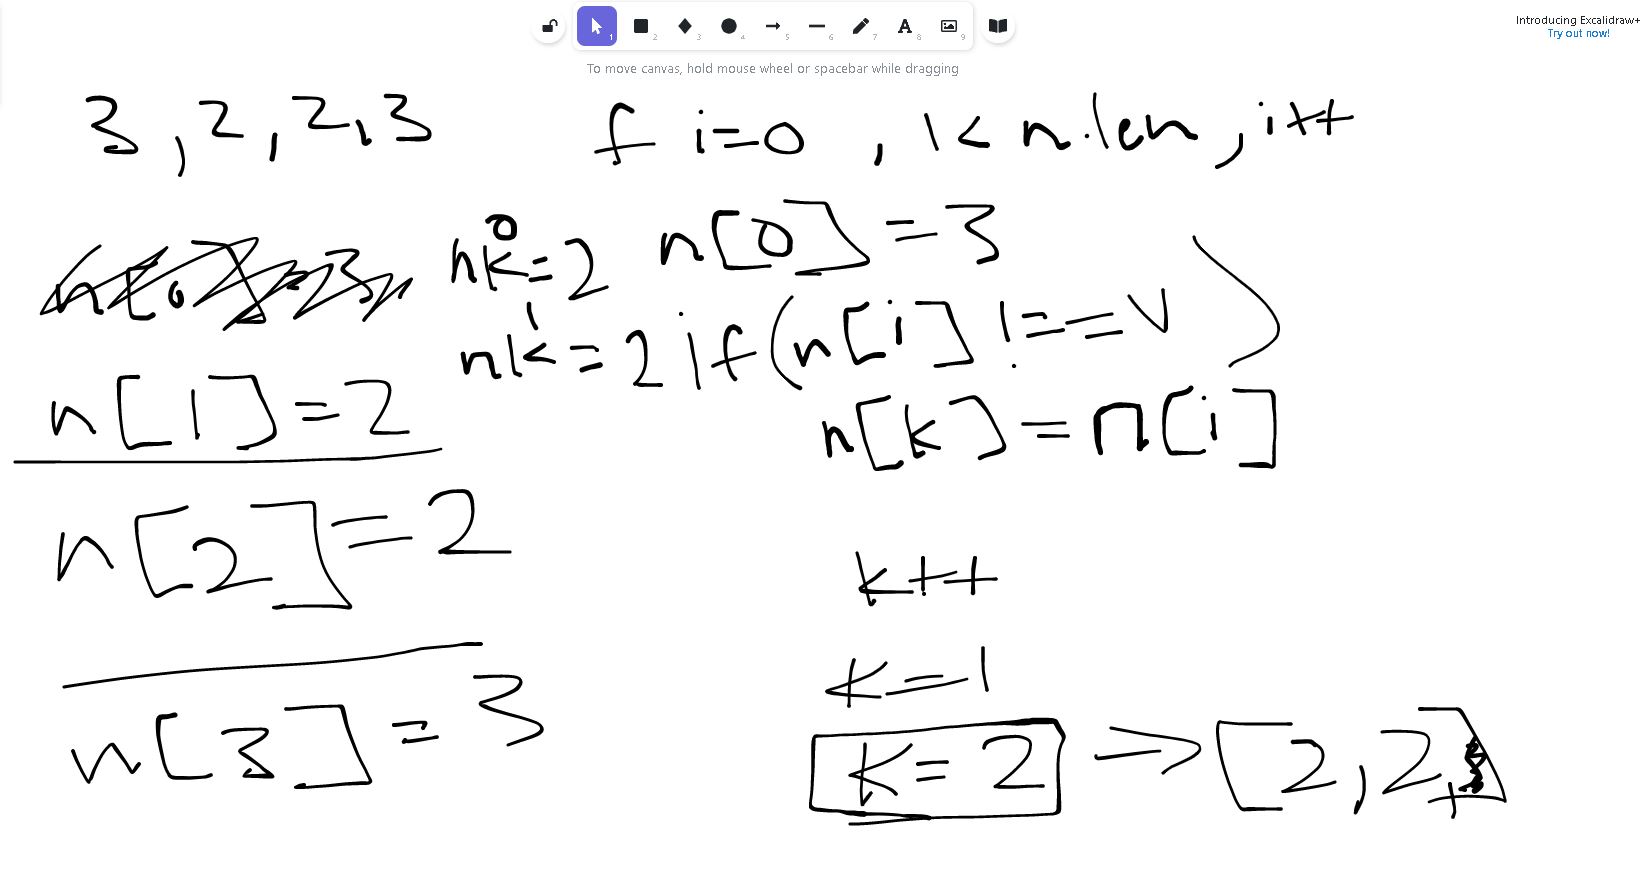 1 2 3 4 5 6 7 8 9
Introducing Excalidraw+
Try out now!
To move canvas, hold mouse wheel or spacebar while dragging
3, 2, 2, 3
f i=0, i< n.len, i++
n[0]=3
nk=2
0
n[0]=3
if(n[i] !== v)
nk=2
1
n[1]=2
n[k]=n[i]
n[2]=2
k++
k=1
n[3]=3
k=2 → [2,2]